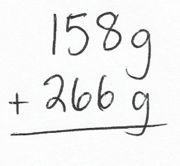 158g
+ 266 g